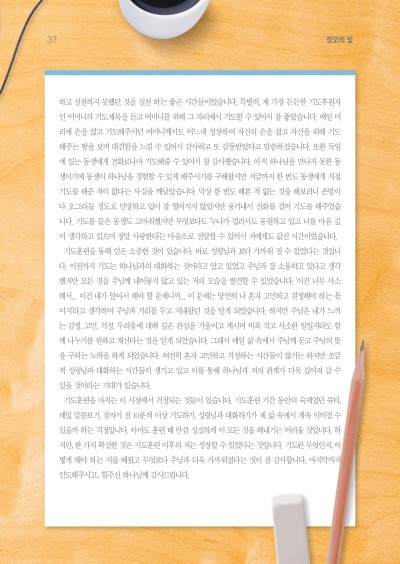 37
정오의 빛
하고 실천하지 못했던 것을 실천 하는 좋은 시간들이었습니다. 특별히, 제 가장 든든한 기도후원자
인 어머니의 기도제목을 듣고 어머니를 위해 그 자리에서 기도할 수 있어서 참 좋았습니다. 매일 머
리에 손을 얹고 기도해주시던 어머니께서도 어느새 성장하여 자신의 손을 잡고 자신을 위해 기도
해주는 딸을 보며 대견함을 느낄 수 있어서 감사하고 또 감동받았다고 말씀하셨습니다. 또한 독일
에 있는 동생에게 전화로나마 기도해줄 수 있어서 참 감사했습니다. 아직 하나님을 만나지 못한 동
생이기에 동생이 하나님을 경험할 수 있게 해주시기를 구해왔지만 지금까지 한 번도 동생에게 직접
기도를 해준 적이 없다는 사실을 깨달았습니다. 막상 한 번도 해본 적 없는 것을 해보려니 손발이
다 오그라들 정도로 민망하고 입이 잘 떨어지지 않았지만 용기내서 전화를 걸어 기도를 해주었습
니다. 기도를 들은 동생도 고마워했지만 무엇보다도 '누나가 멀리서도 응원하고 있고 너를 마음 깊
이 생각하고 있으며 정말 사랑한다'는 마음으로 전달할 수 있어서 저에게도 값진 시간이었습니다.
기도훈련을 통해 얻은 소중한 것이 있습니다. 바로 성령님과 보다 가까워 질 수 있었다는 것입니
다. 이전까지 기도는 하나님과의 대화하는 것이라고 알고 있었고 주님과 잘 소통하고 있다고 생각
했지만 모든 것을 주님께 내어놓지 않고 있는 저의 모습을 발견할 수 있었습니다. '이건 너무 사소
해서... 이건 내가 알아서 해야 할 문제니까... 이 문제는 당연히 나 혼자 고민하고 결정해야 하는 몫
이지'라고 생각하며 주님과 거리를 두고 지내왔던 것을 알게 되었습니다. 하지만 주님은 내가 느끼
는 감정, 고민, 걱정, 두려움에 대해 깊은 관심을 기울이고 계시며 비록 작고 사소한 일일지라도 함
께 나누기를 원하고 계신다는 것을 알게 되었습니다. 그래서 매일 삶 속에서 주님께 묻고 주님의 뜻
을 구하는 노력을 하게 되었습니다. 여전히 혼자 고민하고 걱정하는 시간들이 많기는 하지만 조금
씩 성령님과 대화하는 시간들이 생기고 있고 이를 통해 하나님과 저의 관계가 더욱 깊어져 갈 수
있을 것이라는 기대가 있습니다.
기도훈련을 마치는 이 시점에서 걱정되는 것들이 있습니다. 기도훈련 기간 동안의 숙제였던 큐티,
매일 말씀보기, 잠자기 전 10분씩 이상 기도하기, 성령님과 대화하기가 제 삶 속에서 계속 이어질 수
있을까 하는 걱정입니다. 아마도 훈련 때 만큼 성실하게 이 모든 것을 해내기는 어려울 것입니다. 하
지만, 한 가지 확실한 것은 기도훈련 이후의 저는 성장할 수 있었다는 것입니다. 기도란 무엇인지, 어
떻게 해야 하는 지를 배웠고 무엇보다 주님과 더욱 가까워졌다는 것이 참 감사합니다. 마지막까지
인도해주시고, 힘주신 하나님께 감사드립니다.